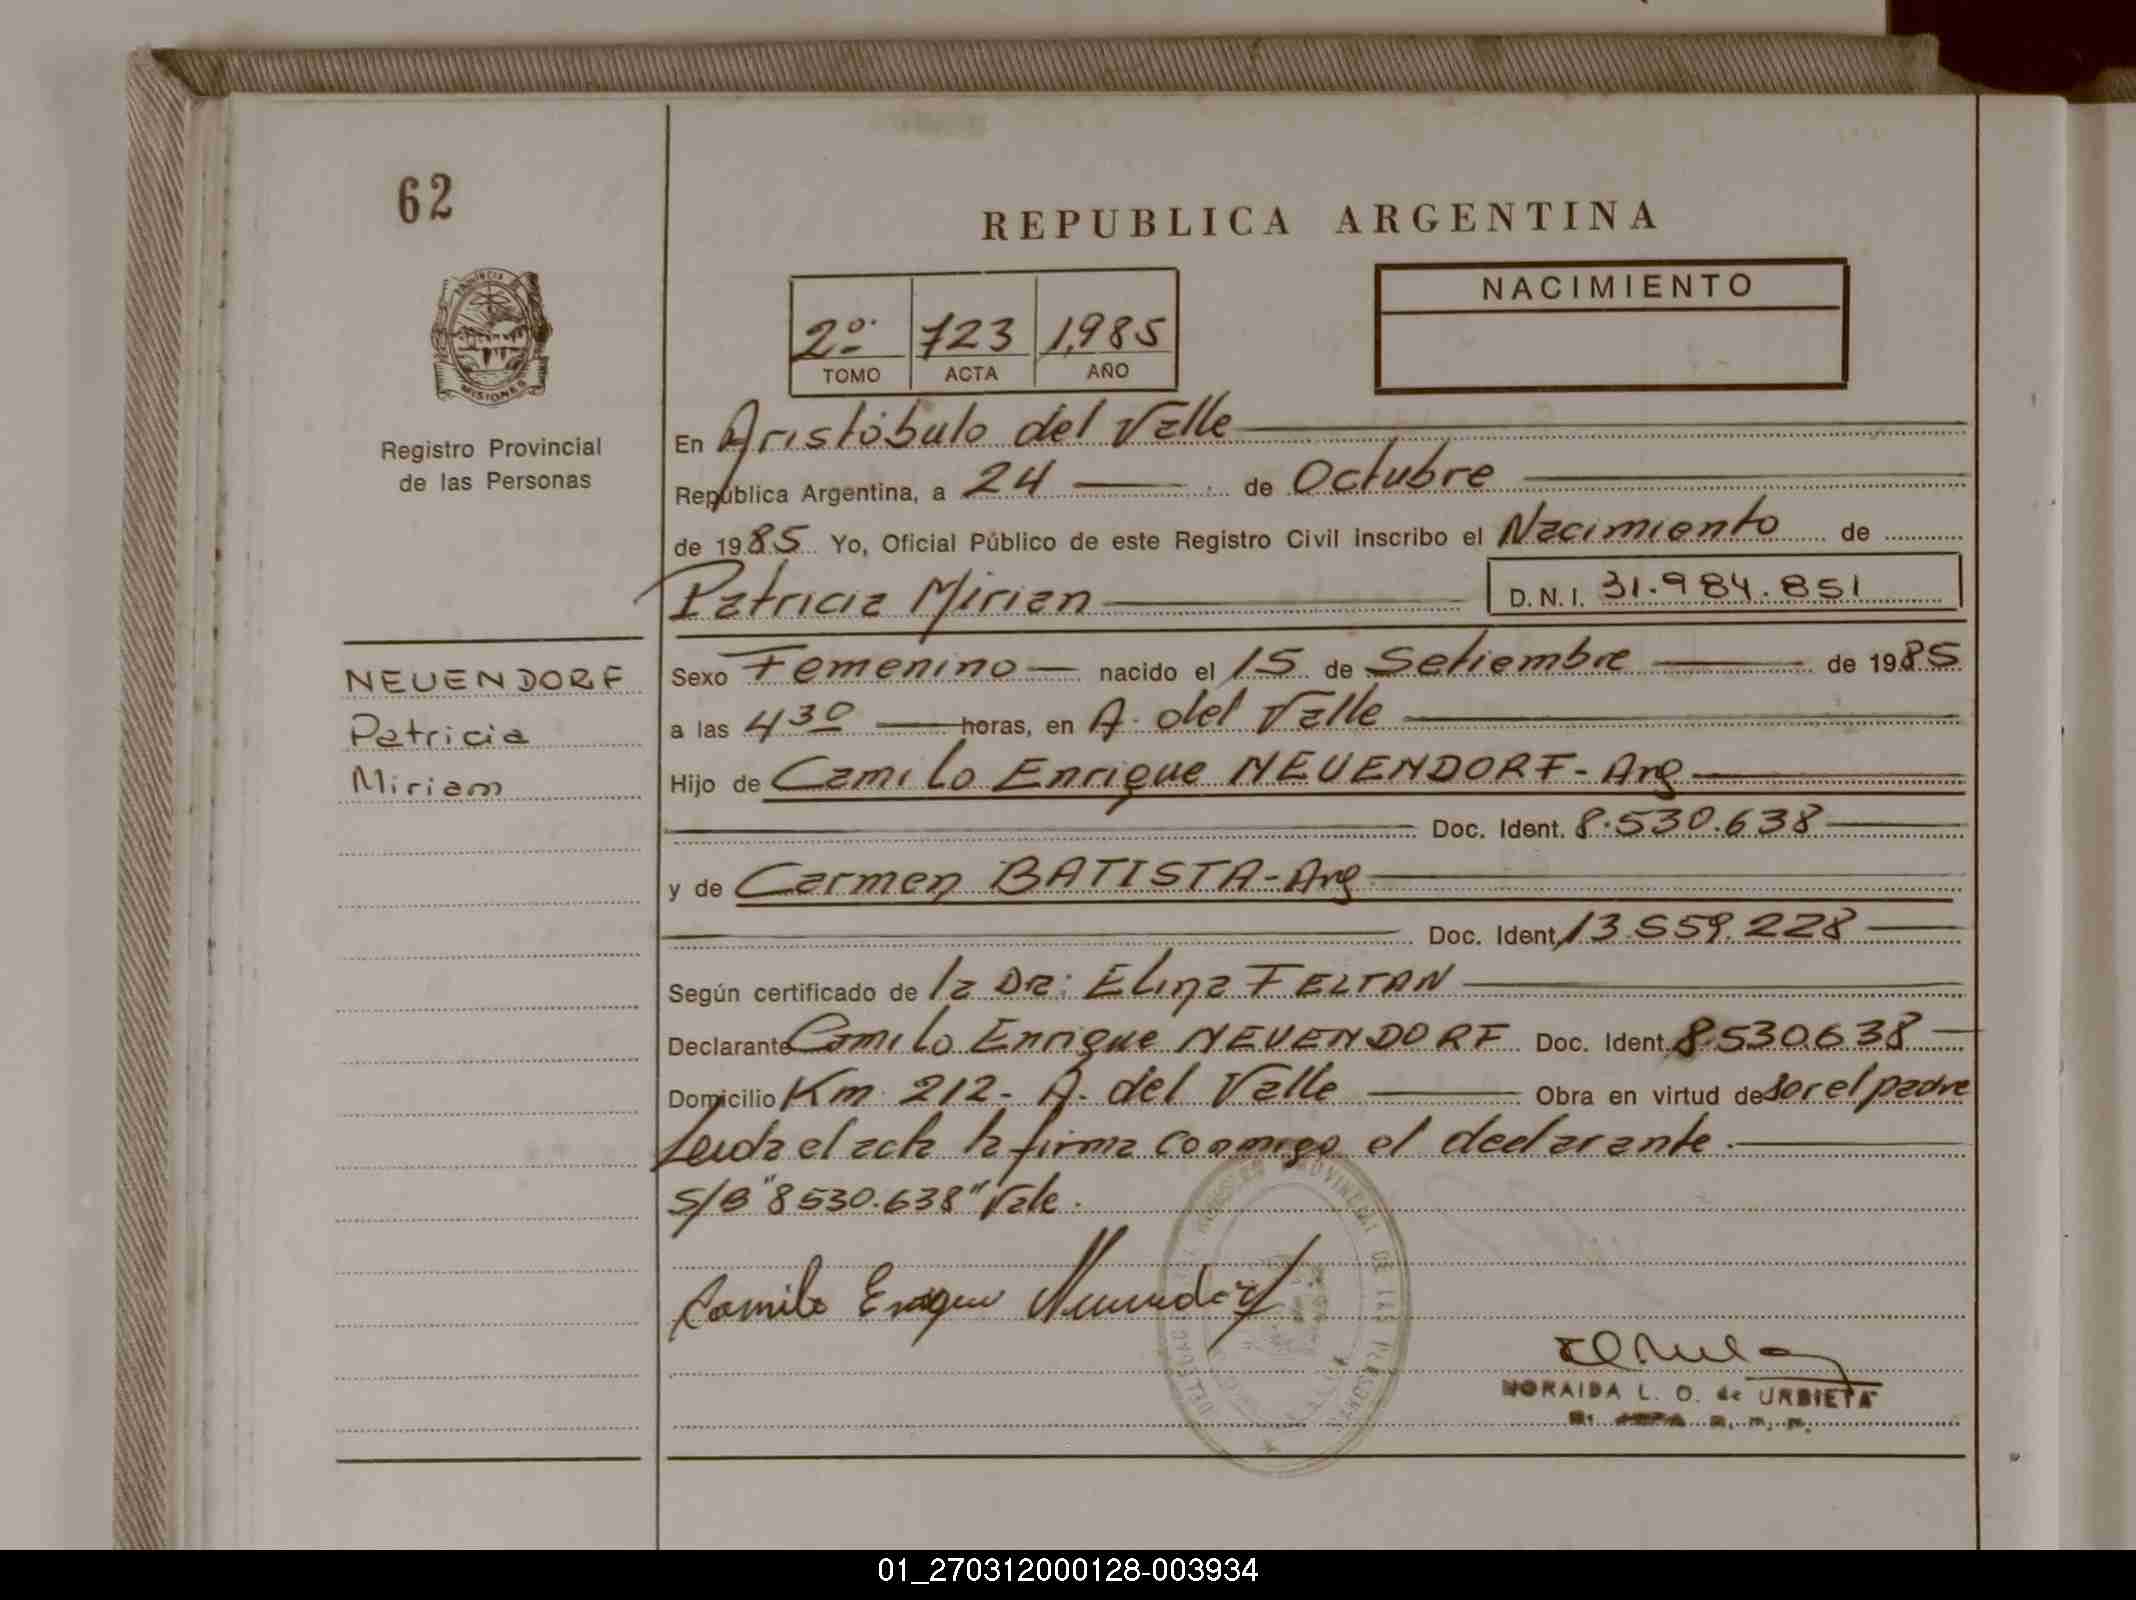 62
REPUBLICA ARGENTINA
PROVINCIA
MISIONES
Registro Provincial
de las Personas
2º 723 1,985
TOMO ACTA AÑO
NACIMIENTO
En Aristóbulo del Valle
República Argentina, a 24 de Octubre
de 1985 Yo, Oficial Público de este Registro Civil inscribo el Nacimiento de
Patricia Mirian D.N.I. 31.984.851
NEUENDORF
Patricia
Miriam
Sexo Femenino nacido el 15 de Setiembre de 1985
a las 4 30 horas, en A. del Valle
Hijo de Camilo Enrique NEUENDORF - Arg
Doc. Ident. 8.530.638
y de Carmen BATISTA - Arg
Doc. Ident. 13.559.228
Según certificado de la Dra: Elina FELTAN
Declarante Camilo Enrique NEUENDORF Doc. Ident. 8.530.638
Domicilio Km 212 - A. del Valle Obra en virtud de ser el padre
Leida el acta la firma conmigo el declarante.
S/B "8530.638" Vale.
Camilo Enrique Neuendorf
NORAIDA L. O. de URBIETA
01_270312000128-003934